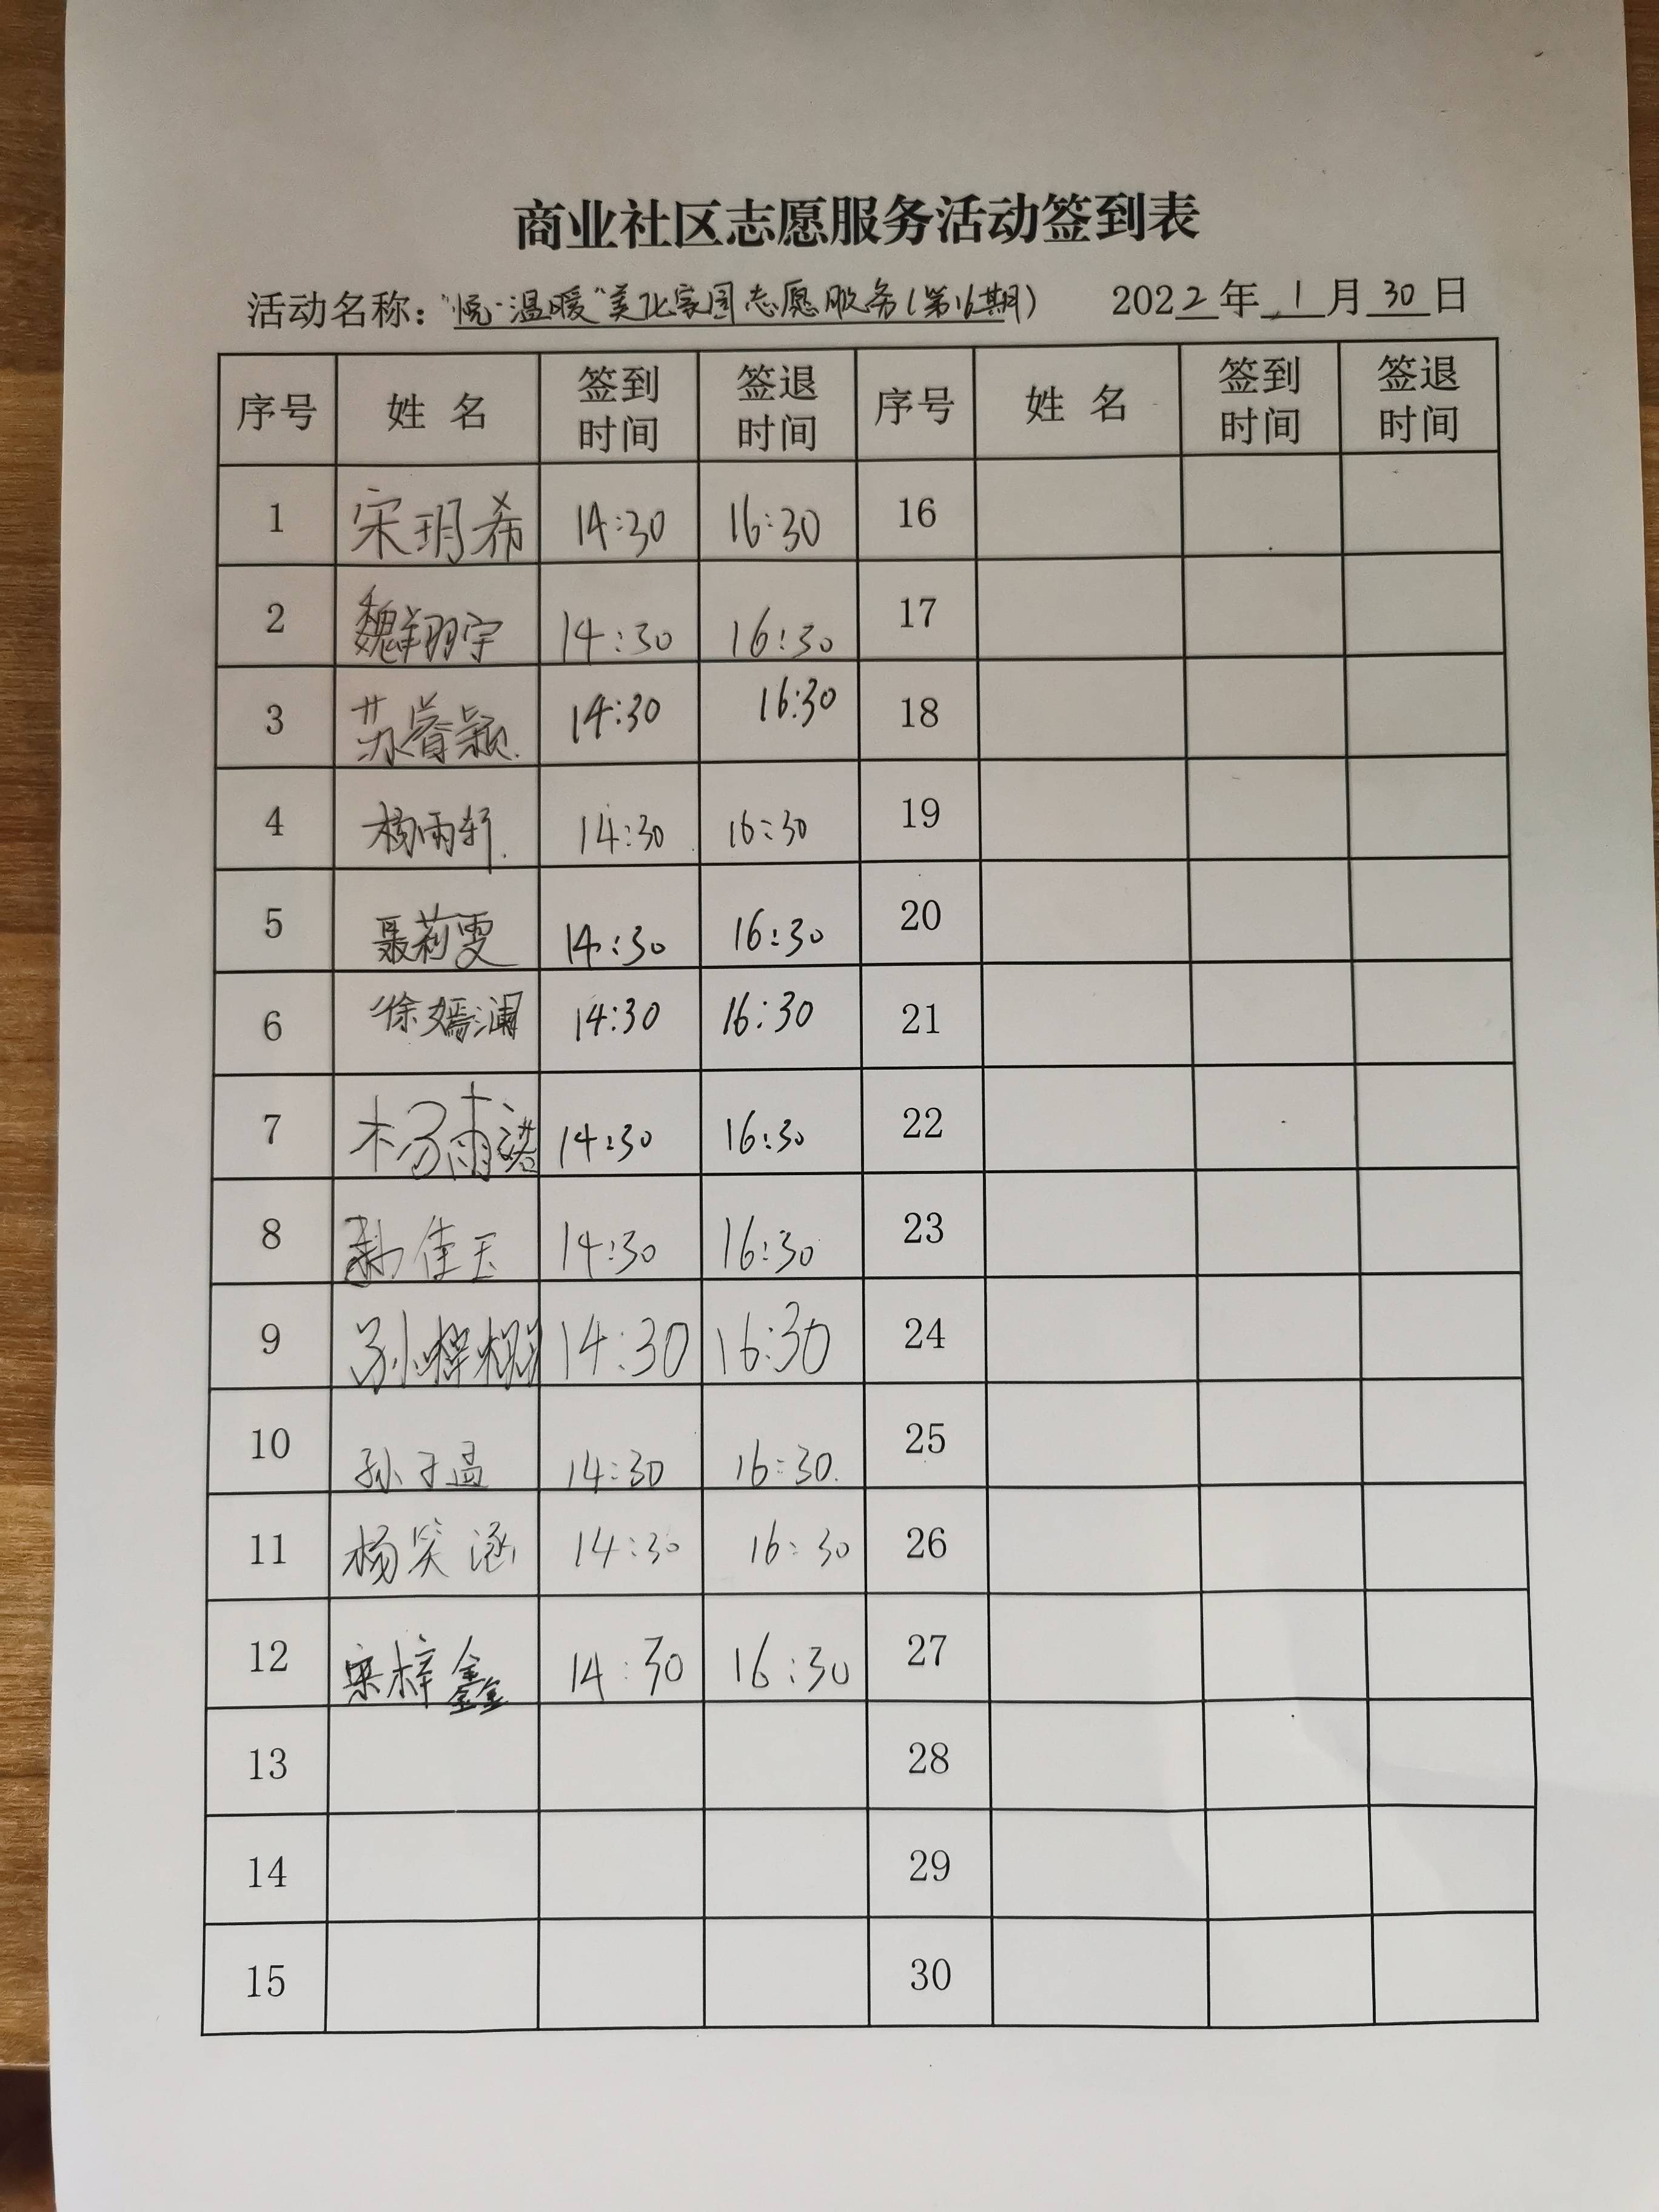 商业社区志愿服务活动签到表
活动名称："悦·温暖"美化家园志愿服务(第16期) 2022年1月30日
序号 姓名 签到时间 签退时间 序号 姓名 签到时间 签退时间
1 宋玥希 14:30 16:30 16
2 魏翔宇 14:30 16:30 17
3 苏睿颖 14:30 16:30 18
4 杨雨轩 14:30 16:30 19
5 聂莉雯 14:30 16:30 20
6 徐嫣澜 14:30 16:30 21
7 杨雨诺 14:30 16:30 22
8 佳玉 14:30 16:30 23
9 孙梓 14:30 16:30 24
10 孙于 14:30 16:30 25
11 杨笑涵 14:30 16:30 26
12 梓鑫 14:30 16:30 27
13 28
14 29
15 30